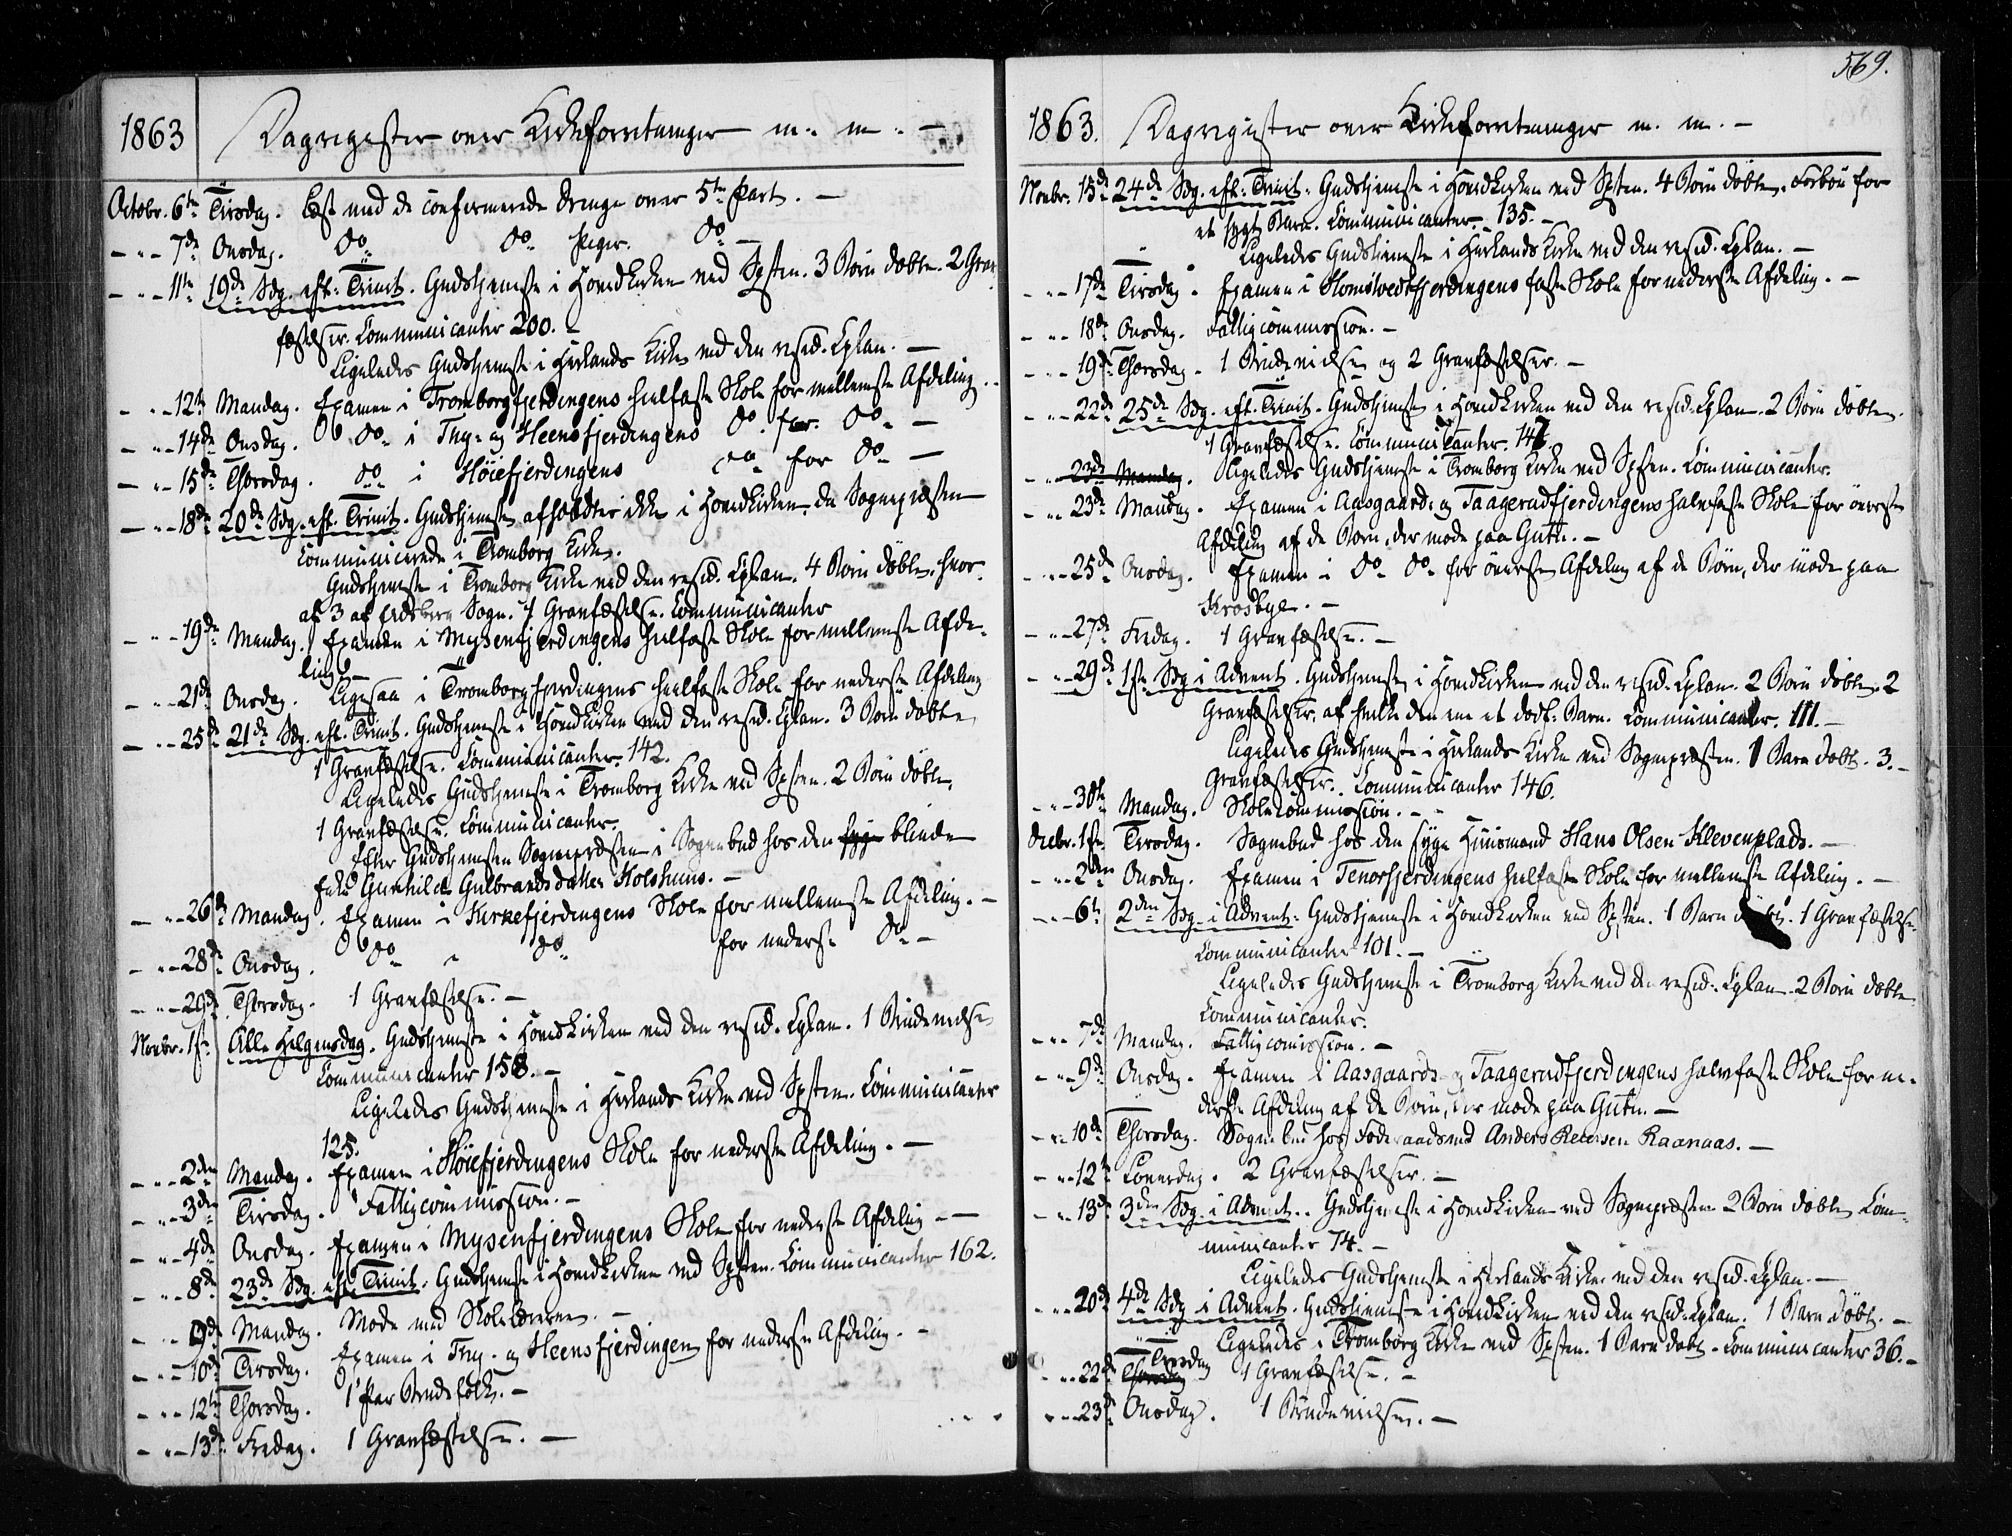 1863 Dagregister over Kirkeforretninger m. m. –
Octobr. 6te Tirsdag. Læst med de confirmerede Drenge over 5te Part. –
– " – 7de Onsdag. Do Do Piger. Do –
– " – 11te 19de Sdg. eft. Trinit. Gudstjeneste i Hovedkirken ved Spsten. 3 Børn døbte. 2 Grav-
fæstelser. Communicanter 200. –
Ligeledes Gudstjeneste i Herlands Kirke ved den resid. Cplan. –
– " – 12te Mandag. Examen i Trømborgfjerdingens heelfaste Skole for mellemste Afdeling. –
– " – 14de Onsdag. Do i Thy- og Heensfjerdingens Do for Do –
– " – 15de Thorsdag. Do i Høiefjerdingens Do for Do –
– " – 18de 20de Sdg. eft. Trinit. Gudstjeneste afholdtes ikke i Hovedkirken da Sognepræsten
communicerede i Trømborg Kirke.
Gudstjeneste i Trømborg Kirke ved den resid. Cplan. 4 Børn døbte, hvor-
af 3 af Eidsberg Sogn. 1 Gravfæstelse. Communicanter
– " – 19de Mandag. Examen i Mysenfjerdingens heelfaste Skole for mellemste Afde-
ling. –
– " – 21de Onsdag. Ligesaa i Trømborgfjerdingens heelfaste Skole for nederste Afdeling
– " – 25de 21de Sdg. eft. Trinit. Gudstjeneste i Hovedkirken ved den resid. Cplan. 3 Børn døbte
1 Gravfæstelse. Communicanter 142.
Ligeledes Gudstjeneste i Trømborg Kirke ved Spsten. 2 Børn døbte.
1 Gravfæstelse. Communicanter.
Efter Gudstjenesten Sognepræsten i Sognebud hos den syge blinde
Enke Gunhild Gulbrandsdatter Kolshuus. –
– " – 26de Mandag. Examen i Kirkefjerdingens Skole for mellemste Afdeling. –
– " – 28de Onsdag. Do " Do for nederste Do –
– " – 29de Thorsdag. 1 Gravfæstelse. –
Novbr. 1ste Alle Helgensdag. Gudstjeneste i Hovedkirken ved den resid. Cplan. 1 Brudevielse
Communicanter 158. –
Ligeledes Gudstjeneste i Herlands Kirke ved Spsten. Communicanter
125.
– " – 2den Mandag. Examen i Høiefjerdingens Skole for nederste Afdeling. –
– " – 3die Tirsdag. Fattigcommission. –
– " – 4de Onsdag. Examen i Mysenfjerdingens Skole for nederste Afdeling –
– " – 8de 23de Sdg. eft. Trinit. Gudstjeneste i Hovedkirken ved Spsten. Communicanter 162.
– " – 9de Mandag. Møde med Skolelærerne. –
– " – 10de Tirsdag. Examen i Thy- og Heensfjerdingen for nederste Afdeling. –
– " – 12te Thorsdag. 1 Par Brudefolk. –
– " – 13de Fredag. 1 Gravfæstelse. –
569.
1863. Dagregister over Kirkeforretninger m. m. –
Novbr. 15de 24de Sdg. eft. Trinit. Gudstjeneste i Hovedkirken ved Spsten. 4 Børn døbte. Forbøn for
et sygt Barn. Communicanter 135. –
Ligeledes Gudstjeneste i Herlands Kirke ved den resid. Cplan. –
– " – 17de Tirsdag. Examen i Homstvedtfjerdingens faste Skole for nederste Afdeling. –
– " – 18de Onsdag. Fattigcommission. –
– " – 19de Thorsdag. 1 Brudevielse og 2 Gravfæstelser. –
– " – 22de 25de Sdg. eft. Trinit. Gudstjeneste i Hovedkirken ved den resid. Cplan. 2 Børn døbte.
1 Gravfæstelse. Communicanter 147.
– " – 23de Mandag. Ligeledes Gudstjeneste i Trømborg Kirke ved Spsten. Communicanter.
– " – 23de Mandag. Examen i Aasgaard- og Taagerudfjerdingens halvfaste Skole for øverste
Afdeling af de Børn, der møde paa Gutu. –
– " – 25de Onsdag. Examen i Do Do for øverste Afdeling af de Børn, der møde paa
Krosbye. –
– " – 27de Fredag. 1 Gravfæstelse. –
– " – 29de 1ste Sdg i Advent. Gudstjeneste i Hovedkirken ved den resid. Cplan. 2 Børn døbte. 2
Gravfæstelser, af hvilke den ene et dødf. Barn. Communicanter. 111. –
Ligeledes Gudstjeneste i Herlands Kirke ved Sognepræsten. 1 Barn døbt. 3. –
Gravfæstelser. Communicanter 146.
– " – 30te Mandag. Skolecommission. –
Decbr. 1ste Tirsdag. Sognebud hos den syge Huusmand Hans Olsen Klevenplads. –
– " – 2den Onsdag. Examen i Tenorfjerdingens heelfaste Skole for mellemste Afdeling. –
– " – 6te 2den Sdg. i Advent. Gudstjeneste i Hovedkirken ved Spsten. 1 Barn døbt. 1 Gravfæstelse.
Communicanter 101. –
Ligeledes Gudstjeneste i Trømborg Kirke ved den resid. Cplan. 2 Børn døbte
Communicanter.
– " – 7de Mandag. Fattigcomission. –
– " – 9de Onsdag. Examen i Aasgaards- og Taagerudfjerdingens halvfaste Skole for ne-
derste Afdeling af de Børn, der møde paa Gutu. –
– " – 10de Thorsdag. Sognebud hos Føderaadsmd Anders Pedersen Raanaas. –
– " – 12te Løverdag. 2 Gravfæstelser. –
– " – 13de 3die Sdg. i Advent. Gudstjeneste i Hovedkirken ved Sognepræsten 2 Børn døbte Com-
municanter 74. –
Ligeledes Gudstjeneste i Herlands Kirke ved den resid. Cplan. –
– " – 20de 4de Sdg i Advent. Gudstjeneste i Hovedkirken ved den resid. Cplan. 1 Barn døbt. –
Ligeledes i Trømborg Kirke ved Spsten. 1 Barn døbt. Communicanter 36. –
– " – 22de Thorsdag Tirsdag 1 Gravfæstelse. –
– " – 23de Onsdag. 1 Brudevielse. –